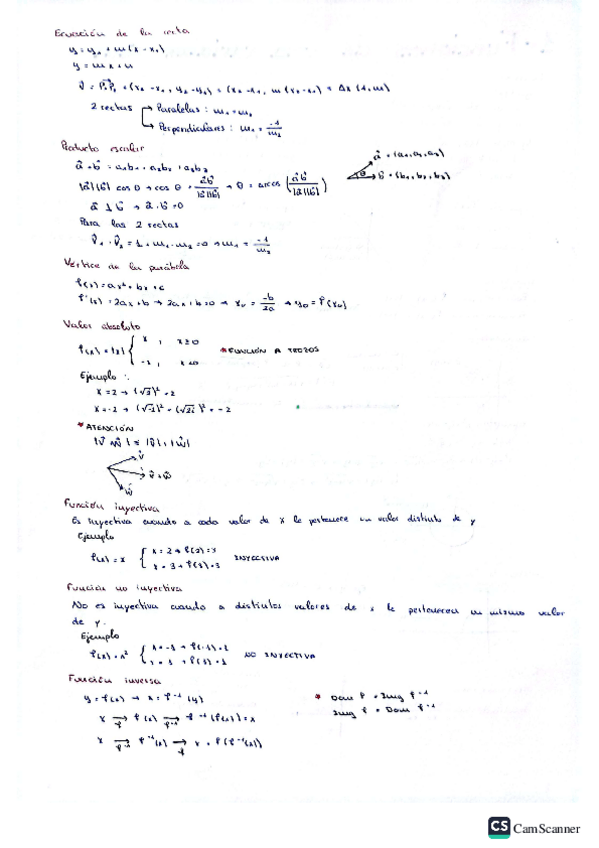 Ecuación de la recta
y = y₁ + m(x - x₁)
y = mx + n
v⃗ = P₁P₂ = (x₂ - x₁, y₂ - y₁) = (x₂ - x₁, m(x₂ - x₁)) = Δx (1, m)
2 rectas → Paralelas : m₁ = m₂
→ Perpendiculares : m₁ = -1/m₂
Producto escalar
a⃗ · b⃗ = a₁b₁ + a₂b₂ + a₃b₃
a⃗ = (a₁, a₂, a₃)
θ b⃗ = (b₁, b₂, b₃)
|a⃗||b⃗| cos θ → cos θ = a⃗b⃗/|a⃗||b⃗| → θ = arccos (a⃗b⃗/|a⃗||b⃗|)
a⃗ ⊥ b⃗ → a⃗ · b⃗ = 0
Para las 2 rectas
v⃗₁ · v⃗₂ = 1 + m₁ · m₂ = 0 → m₁ = -1/m₂
Vértice de la parábola
f(x) = ax² + bx + c
f'(x) = 2ax + b → 2ax + b = 0 → xᵥ = -b/2a → y₀ = f(xᵥ)
Valor absoluto
f(x) = |x| { x , x ≥ 0
-x , x < 0
* FUNCIÓN A TROZOS
Ejemplo :
x = 2 → (√2)² = 2
x = -2 → (√-2)² = (√2i)² = -2
* ATENCIÓN
|v⃗ w⃗| ≤ |v⃗| + |w⃗|
v⃗
v⃗ + w⃗
w⃗
Función inyectiva
Es inyectiva cuando a cada valor de x le pertenece un valor distinto de y
Ejemplo
f(x) = x { x = 2 → f(2) = 2
x = 3 → f(3) = 3
INYECTIVA
Función no inyectiva
No es inyectiva cuando a distintos valores de x le pertenecen un mismo valor
de y.
Ejemplo
f(x) = x² { x = -1 → f(-1) = 1
x = 1 → f(1) = 1
NO INYECTIVA
Función inversa
y = f(x) → x = f⁻¹(y)
* Dom f = Img f⁻¹
Img f = Dom f⁻¹
x →f f(x) →f⁻¹ f⁻¹(f(x)) = x
x →f⁻¹ f⁻¹(x) →f x = f(f⁻¹(x))
CS CamScanner